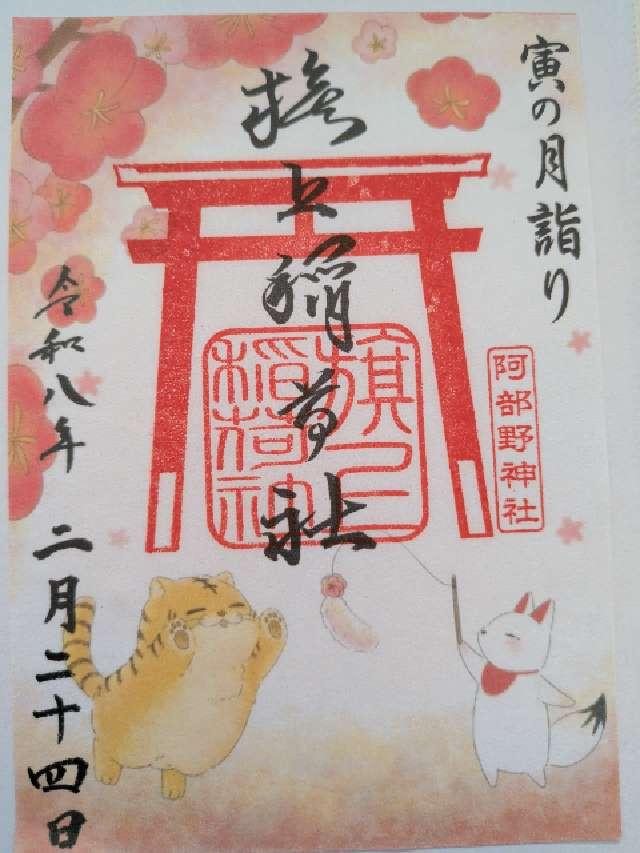 寅の月詣り
旗上稲荷社
阿部野神社
旗上
稲荷神
令和八年 二月二十四日